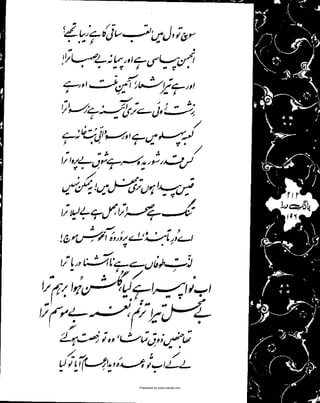 سوچ تو دل میں، لقب ساقی کا ہے زیبا تجھے؟
انجمن پیاسی ہے اور پیمانہ بے صہبا ترا!
اور ہے تیرا شعار، آئینِ ملت اور ہے
زشت روئی سے تری آئینہ ہے رسوا ترا
کعبہ پہلو میں ہے اور سودائیِ بت خانہ ہے
کس قدر شوریدہ سر ہے شوقِ بے پروا ترا
قیس پیدا ہوں تری محفل میں! یہ ممکن نہیں
تنگ ہے صحرا ترا، محمل ہے بے لیلا ترا
اے درِ تابندہ، اے پروردۂ آغوشِ موج!
لذتِ طوفاں سے ہے نا آشنا دریا ترا
اب نوا پیرا ہے کیا، گلشن ہوا برہم ترا
بے محل تیرا ترنم، نغمہ بے موسم ترا
تھا جنھیں ذوقِ تماشا، وہ تو رخصت ہو گئے
لے کے اب تو وعدۂ دیدارِ عام آیا تو کیا
۲۱۲
بانگ درا
۱۹۶
Presented by